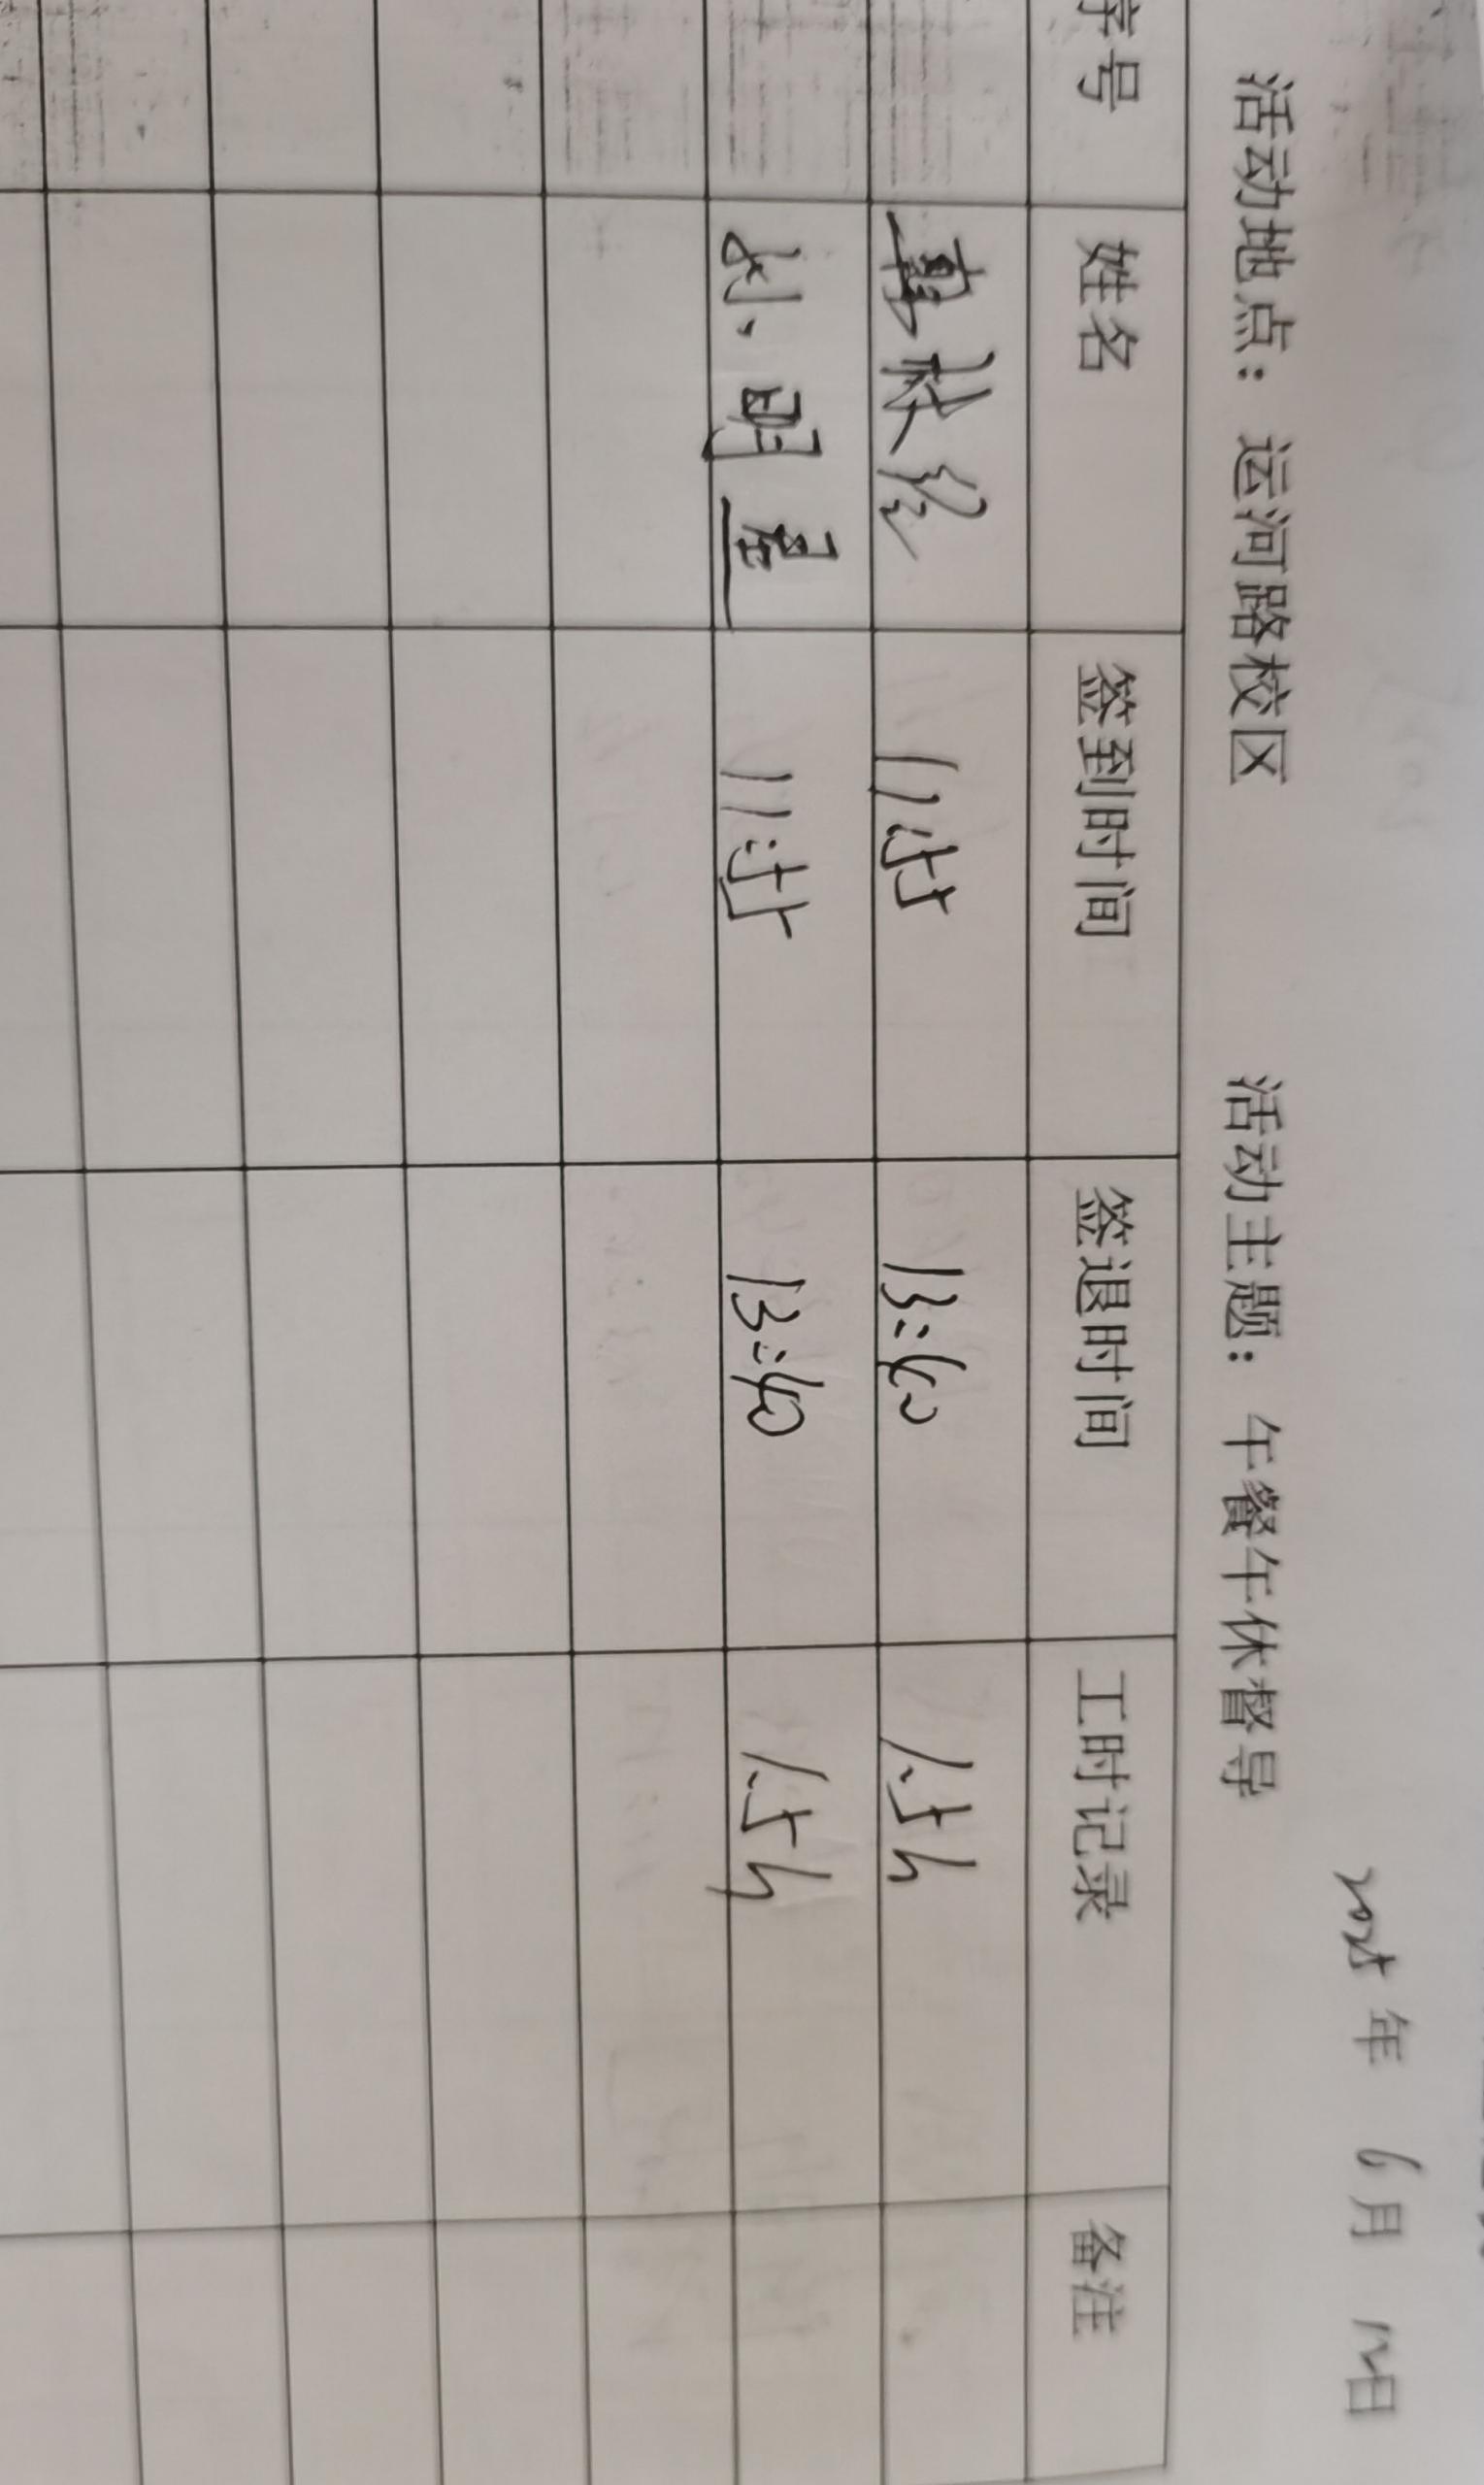 2025年 6月 12日
活动地点：运河路校区 活动主题：午餐午休督导
序号 姓名 签到时间 签退时间 工时记录 备注
11:55 13:40 1.5h
孙明星 11:55 13:40 1.5h